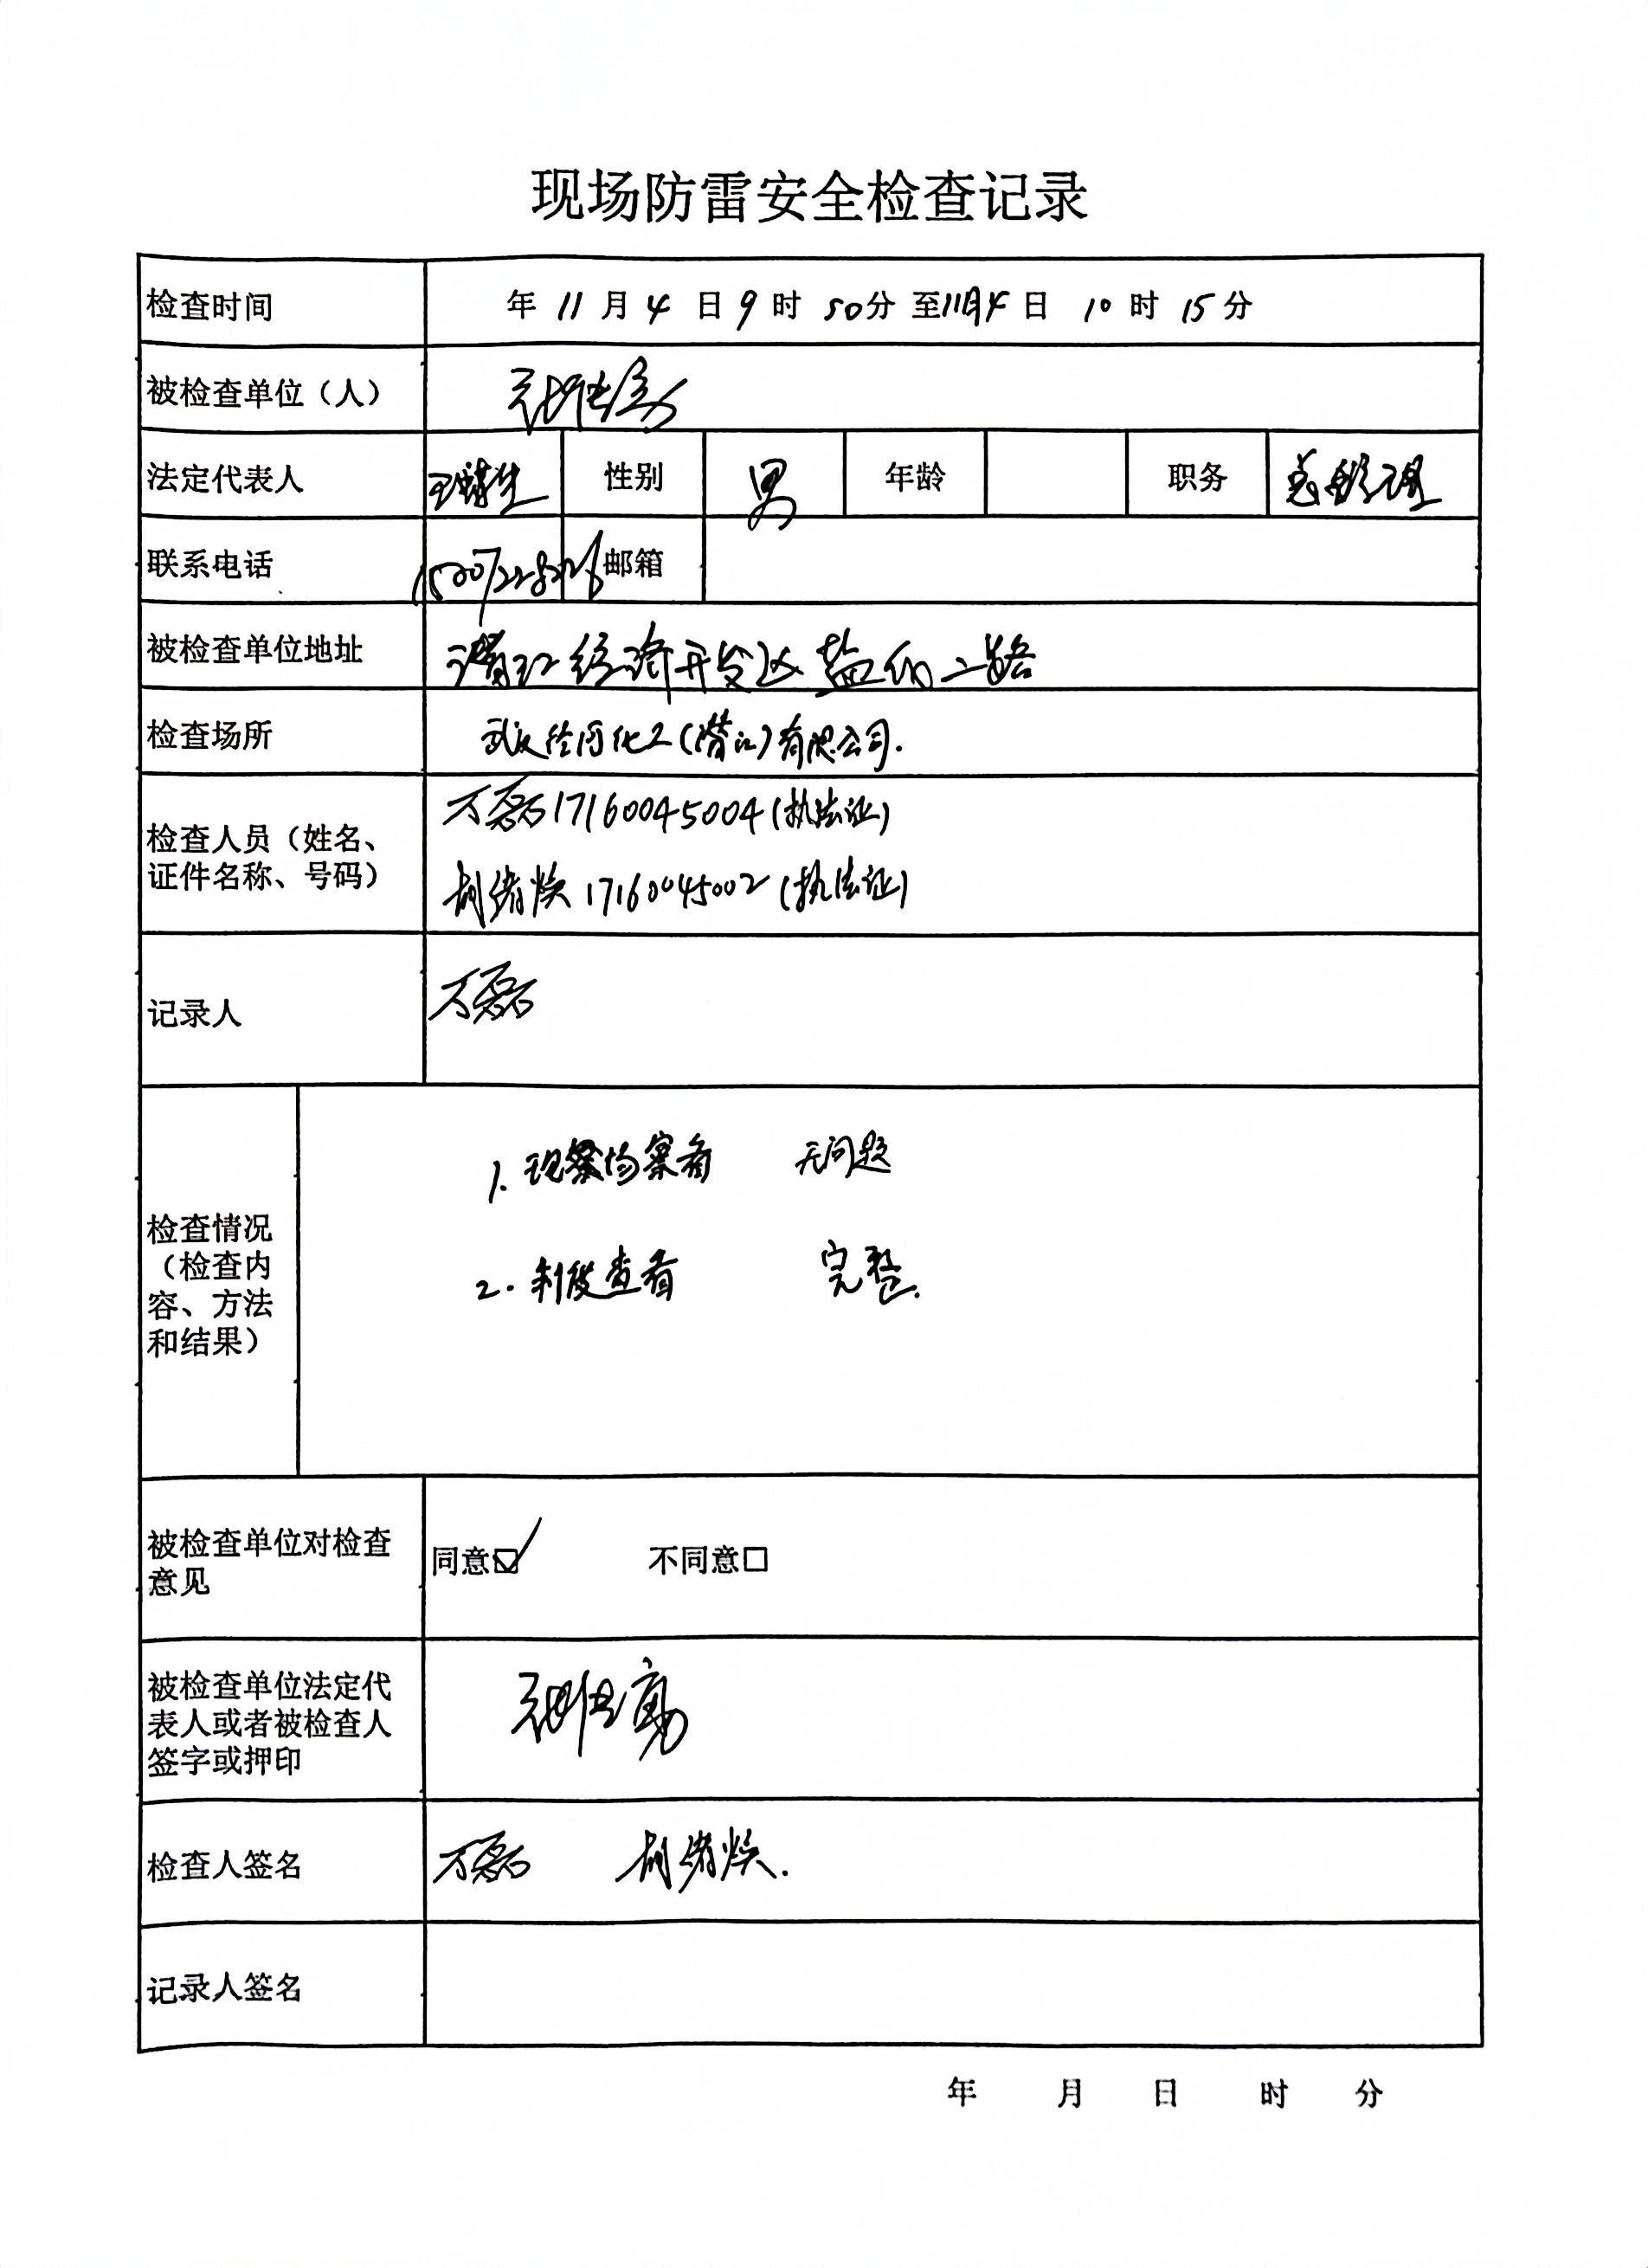 现场防雷安全检查记录
检查时间 年 11 月 4 日 9 时 50分 至11月4 日 10 时 15 分
被检查单位（人）
法定代表人 性别 男 年龄 职务 总经理
联系电话 邮箱
被检查单位地址 潜江经济开发区盐化二路
检查场所 武汉 化工(潜江)有限公司.
检查人员（姓名、
证件名称、号码）
万磊17160045004(执法证)
胡绪焕17160045002(执法证)
记录人 万磊
检查情况
（检查内
容、方法
和结果）
1. 现 场察看 无问题
2. 制度查看 完整.
被检查单位对检查
意见
同意☑ 不同意□
被检查单位法定代
表人或者被检查人
签字或押印
检查人签名 万磊 胡绪焕.
记录人签名
年 月 日 时 分